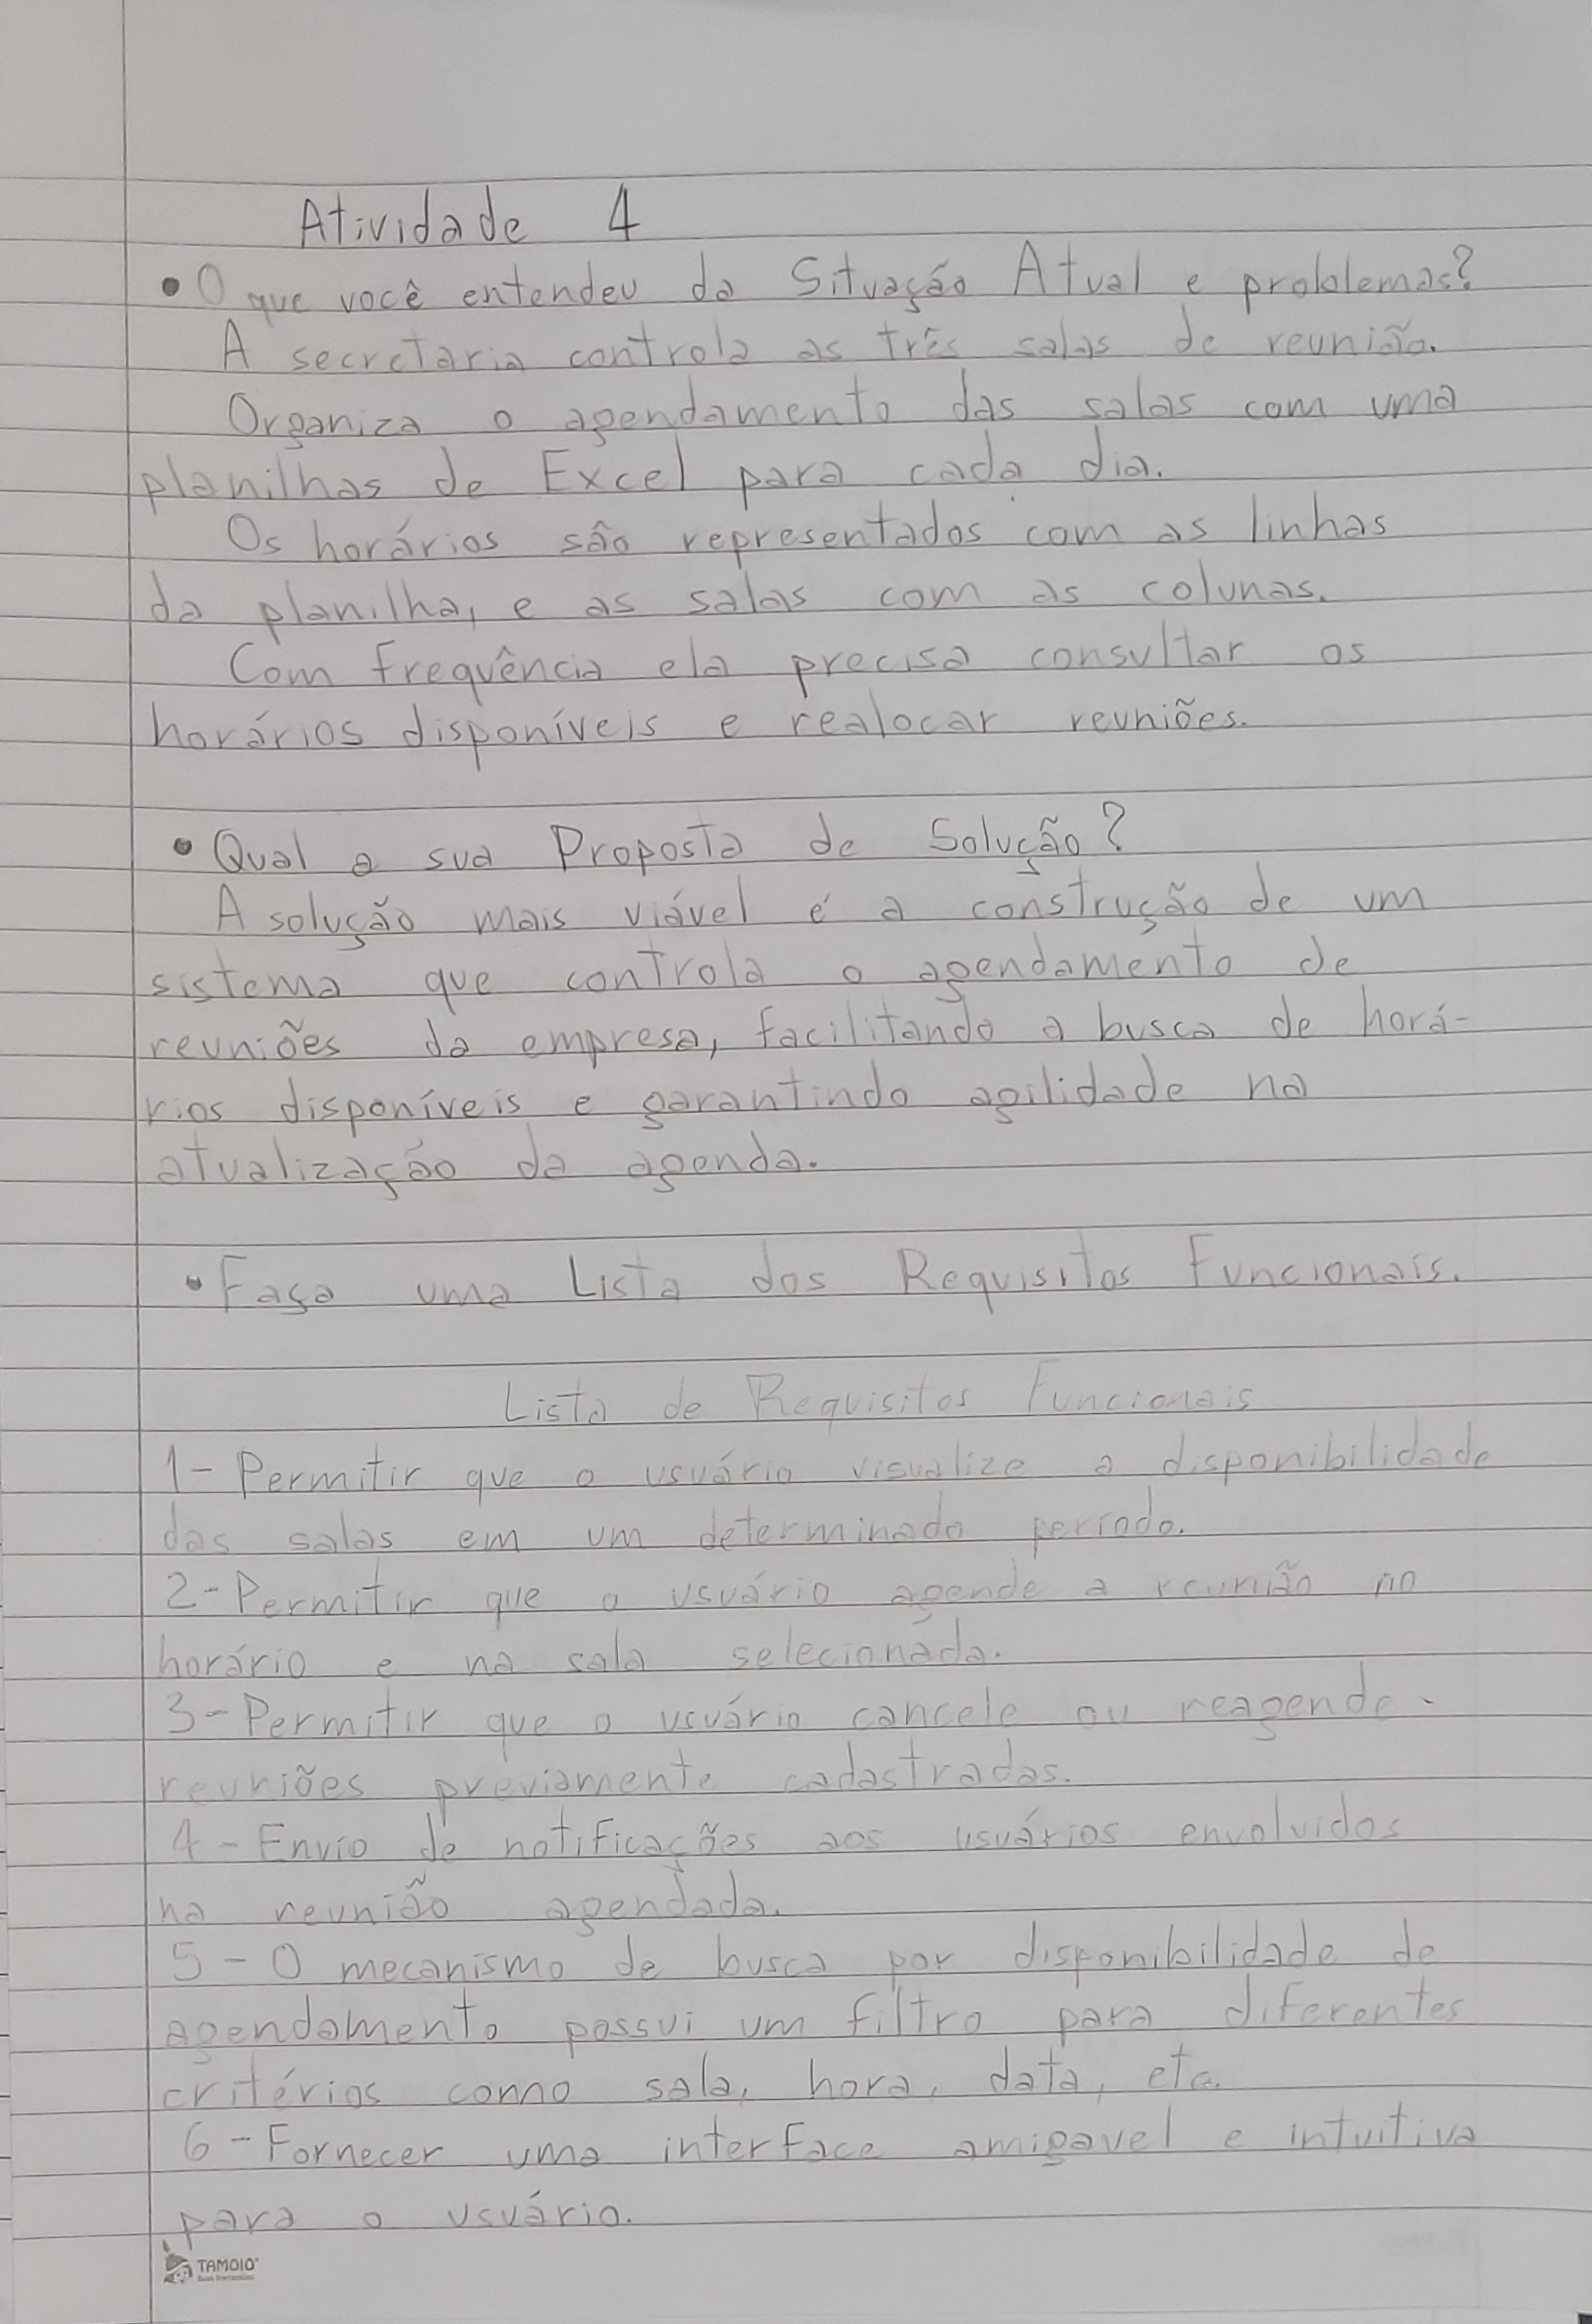 Atividade 4
• O que você entendeu da Situação Atual e problemas?
A secretaria controla as três salas de reunião.
Organiza o agendamento das salas com uma
planilhas de Excel para cada dia.
Os horários são representados com as linhas
da planilha, e as salas com as colunas.
Com frequência ela precisa consultar os
horários disponíveis e realocar reuniões.
• Qual a sua Proposta de Solução?
A solução mais viável é a construção de um
sistema que controla o agendamento de
reuniões da empresa, facilitando a busca de horá-
rios disponíveis e garantindo agilidade na
atualização da agenda.
• Faça uma Lista dos Requisitos Funcionais.
Lista de Requisitos Funcionais
1- Permitir que o usuário visualize a disponibilidade
das salas em um determinado período.
2- Permitir que o usuário agende a reunião no
horário e na sala selecionada.
3- Permitir que o usuário cancele ou reagende
reuniões previamente cadastradas.
4- Envio de notificações aos usuários envolvidos
na reunião agendada.
5- O mecanismo de busca por disponibilidade de
agendamento possui um filtro para diferentes
critérios como sala, hora, data, etc.
6- Fornecer uma interface amigavel e intuitiva
para o usuário.
TAMOIO